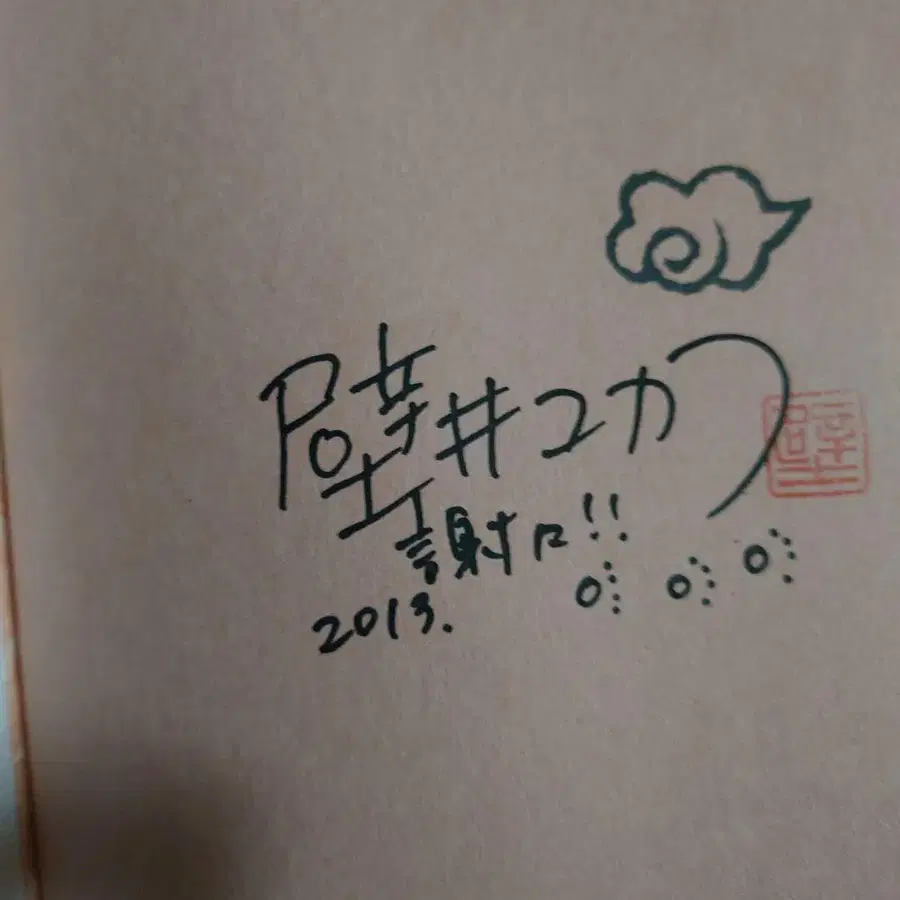 壁井ユカコ
壁
謝口!!
2013.